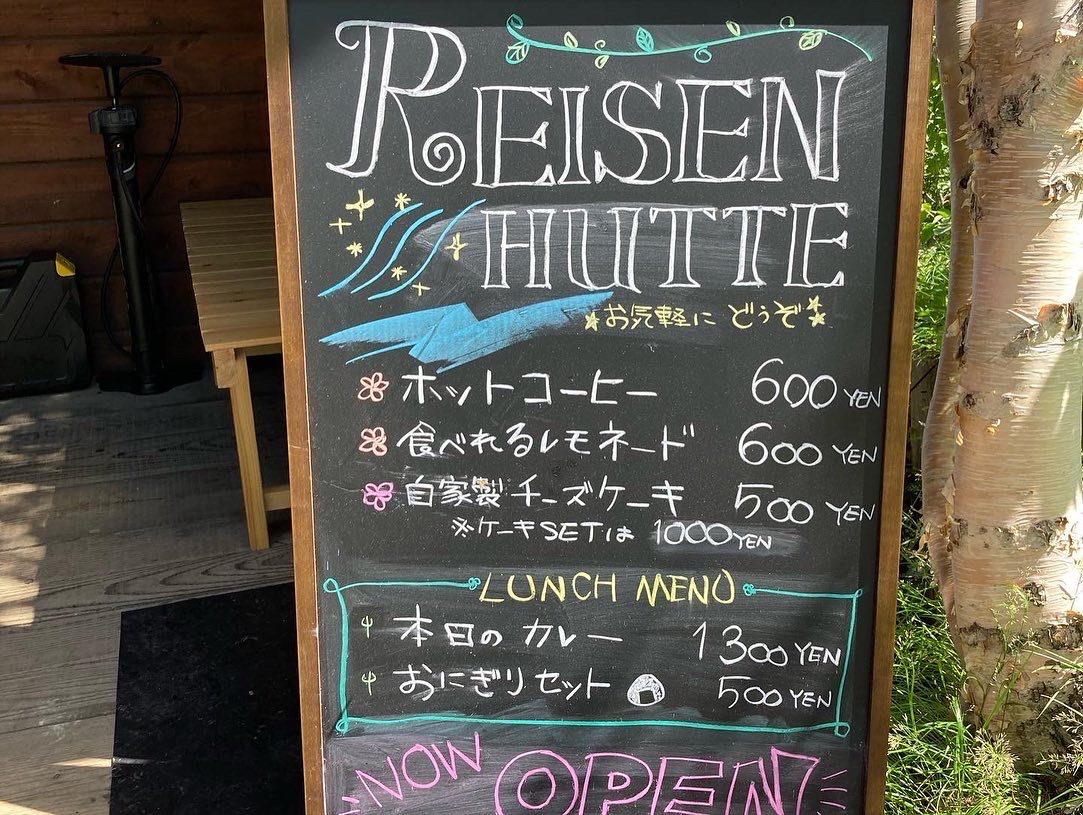 REISEN
HUTTE
お気軽に どうぞ
ホットコーヒー 600 YEN
食べれるレモネード 600 YEN
自家製チーズケーキ 500 YEN
※ケーキSETは 1000 YEN
LUNCH MENU
本日の カレー 1300 YEN
おにぎりセット 500 YEN
NOW OPEN